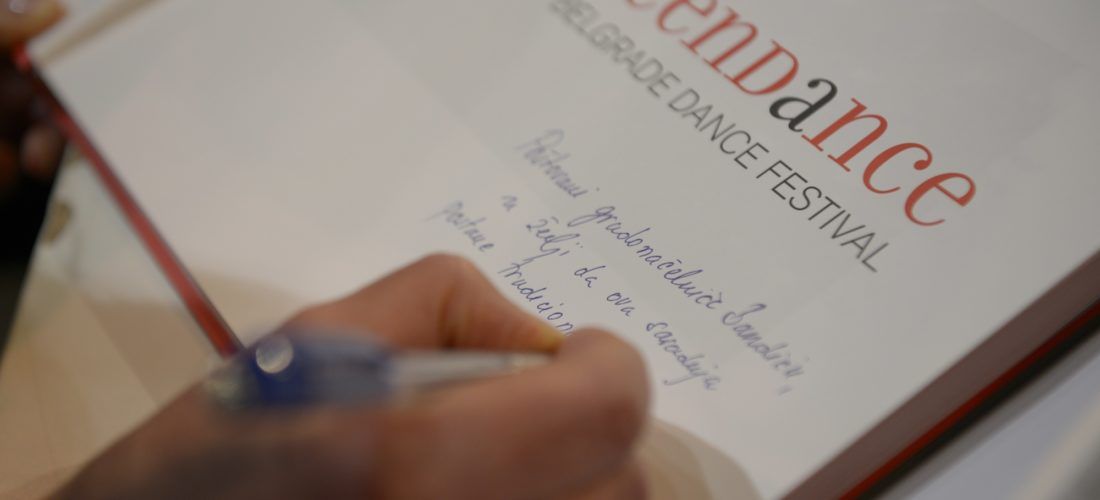 enDance
BELGRADE DANCE FESTIVAL
Poštovani gradonačelniče Bandiću,
u želji da ova saradnja
postane tradicion